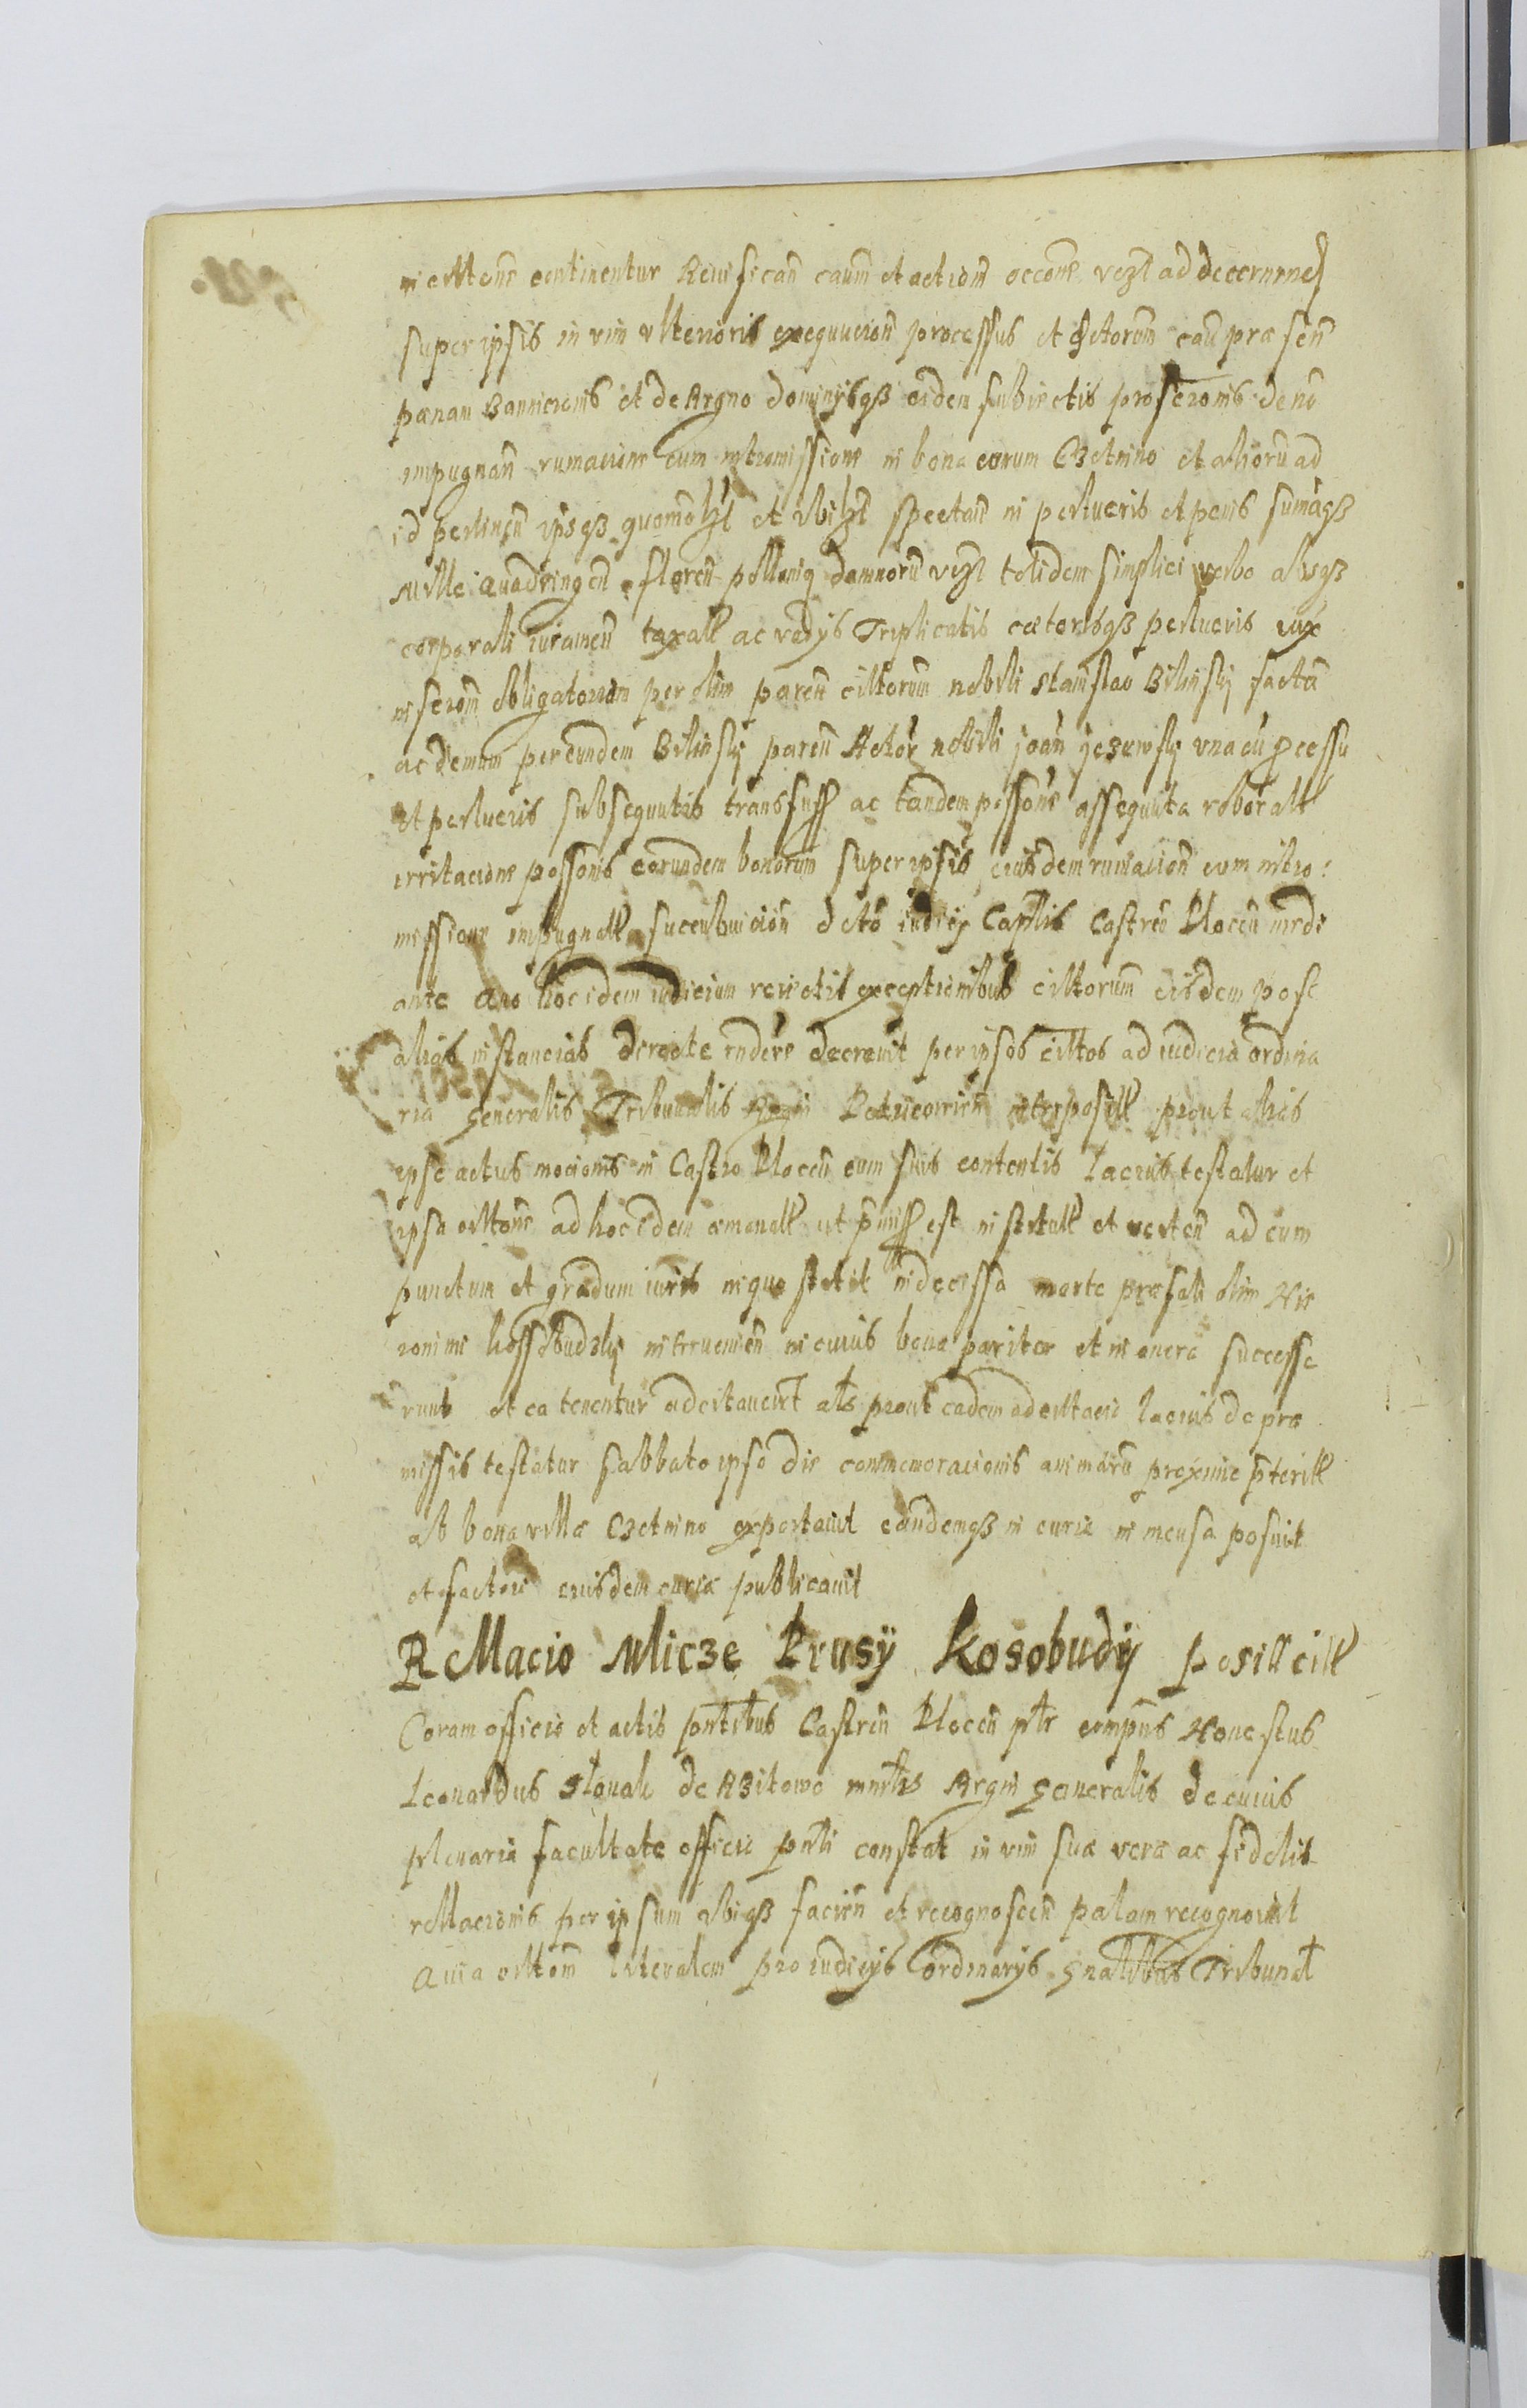 in citt̄one continentur Reuisicān caūm et actiōm occōne vēzl ad decernend
super ipsis in vim vlterioris exequucion̄ processus et actorum caū præsen̄
pœnam Bannicionis et de Regno dominijsqß eidem subiectis proscr̄onis de nō
impugnan̄ rumacione cum intromissione in bona eorum Czetnino et aliorū ad
id pertinen̄ ipsqß quomōlzt et vbilzt spectan̄ in perlucris et penis sumāqß
Mille quadringen̄ floren̄ pollonig damnorū vezl totidem simplici verbo absqß
corporali iuramen̄ taxatt ac vadijs Triplicatis cæterisqß perlucris iux
inscr̄om obligatoriam per olim paren̄ cittorum nobili Stanislao Bilinsky factā
ac demum per eundem Bilinsky paren̄ Actōr nobili Joan̄ Jezewsky vna cū pcessu
et perlucris subsequutis transfuss ac tandem possōne assequuta roboratt
irritacione possōnis eorundem bonorum super ipsis eiusdem rumacion̄ cum intro:
missione impugnatt succubuicion̄ dctō iudicy Captlis Castren̄ Plocen̄ nrdi
ante ano hoc idem iudicium reiectis exceptionibus cittorum eisdem post
alias instancias directe rndēre decreuit per ipsos cittos ad iudicia ordina
ria Generalis Tribunalis Regni Petricouien̄ interpositt prout alias
ipse actus mocionis in Castro Plocen̄ cum suis contentis lacius testatur et
ipsa cittōne ad hoc idem emanatt ut p̄miss est institutt et verten̄ ad eum
punctum et gradum iuris in quo stetit indecissa morte præfati olim Hie
ronimi Kossobudzky interuenien̄ in cuius bona pariter et in onera successe
runt et ea tenentur adcitauerit als prout eadem adcitacio lacius de præ
missis testatur Sabbato ipso die commemoracionis animarū proxime p̄teritt
ab bona villæ Czetnino exportauit eandemqß in curia in mensa posuit
et factori eiusdem curiæ publicauit
Rellacio Micze Krusy Kosobudy positt citt
Coram officio et actis pn̄tibus Castren̄ Plocen̄ ptr compn̄s Honestus
Leonardus Slonak de Rzitowo mnrlis Regni Generalis de cuius
plenaria facultate officio pn̄ti constat in vim suæ veræ ac fidelis
rellacionis per ipsum vbiqß facien̄ et recognoscen̄ palam recognouit
Quia cittom̄ litteralem pro iudicijs ordinarijs Gnalibus Tribunal